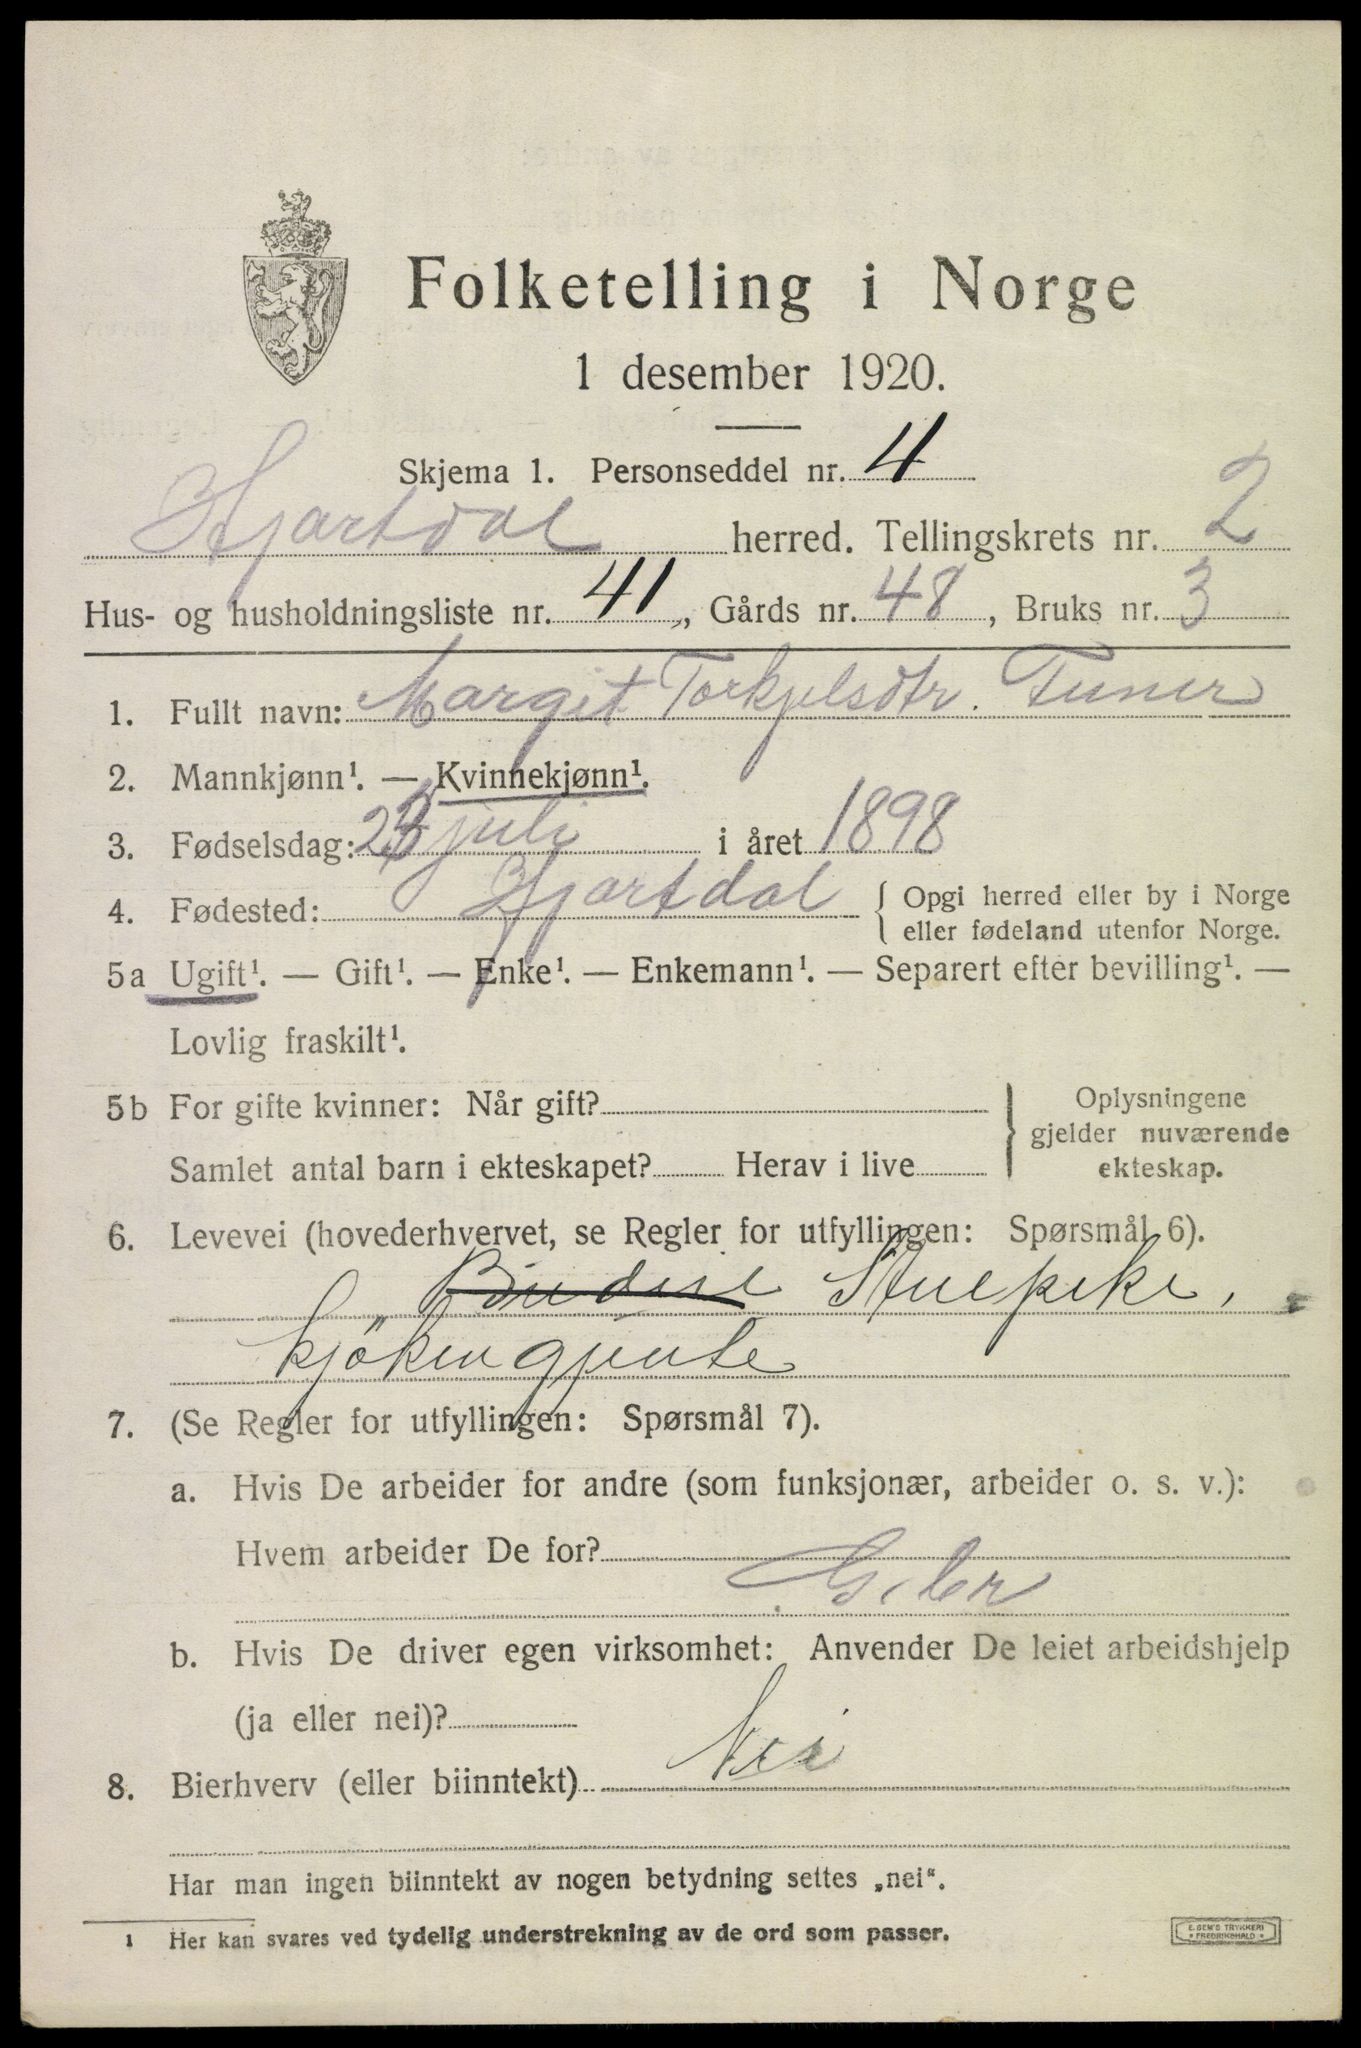 Folketelling i Norge
1 desember 1920.
Skjema 1. Personseddel nr. 4
Hjartdal herred. Tellingskrets nr. 2
Hus- og husholdningsliste nr. 41, Gårds nr. 48, Bruks nr. 3
1. Fullt navn: Margit Torkjelsdtr. Tuner
2. Mannkjønn¹. — Kvinnekjønn¹.
3. Fødselsdag: juli i året 1898
4. Fødested: Hjartdal { Opgi herred eller by i Norge
eller fødeland utenfor Norge.
5a Ugift¹. — Gift¹. — Enke¹. — Enkemann¹. — Separert efter bevilling¹. —
Lovlig fraskilt¹.
5b For gifte kvinner: Når gift? } Oplysningene
gjelder nuværende
Samlet antal barn i ekteskapet? Herav i live ekteskap.
6. Levevei (hovederhvervet, se Regler for utfyllingen: Spørsmål 6).
Budeie Stuepike,
kjöken gjente
7. (Se Regler for utfyllingen: Spørsmål 7).
a. Hvis De arbeider for andre (som funksjonær, arbeider o. s. v.):
Hvem arbeider De for?
b. Hvis De driver egen virksomhet: Anvender De leiet arbeidshjelp
(ja eller nei)?
8. Bierhverv (eller biinntekt) Nei
Har man ingen biinntekt av nogen betydning settes „nei“.
1 Her kan svares ved tydelig understrekning av de ord som passer.
E. SEM'S TRYKKERI
• FREDRIKSHALD •